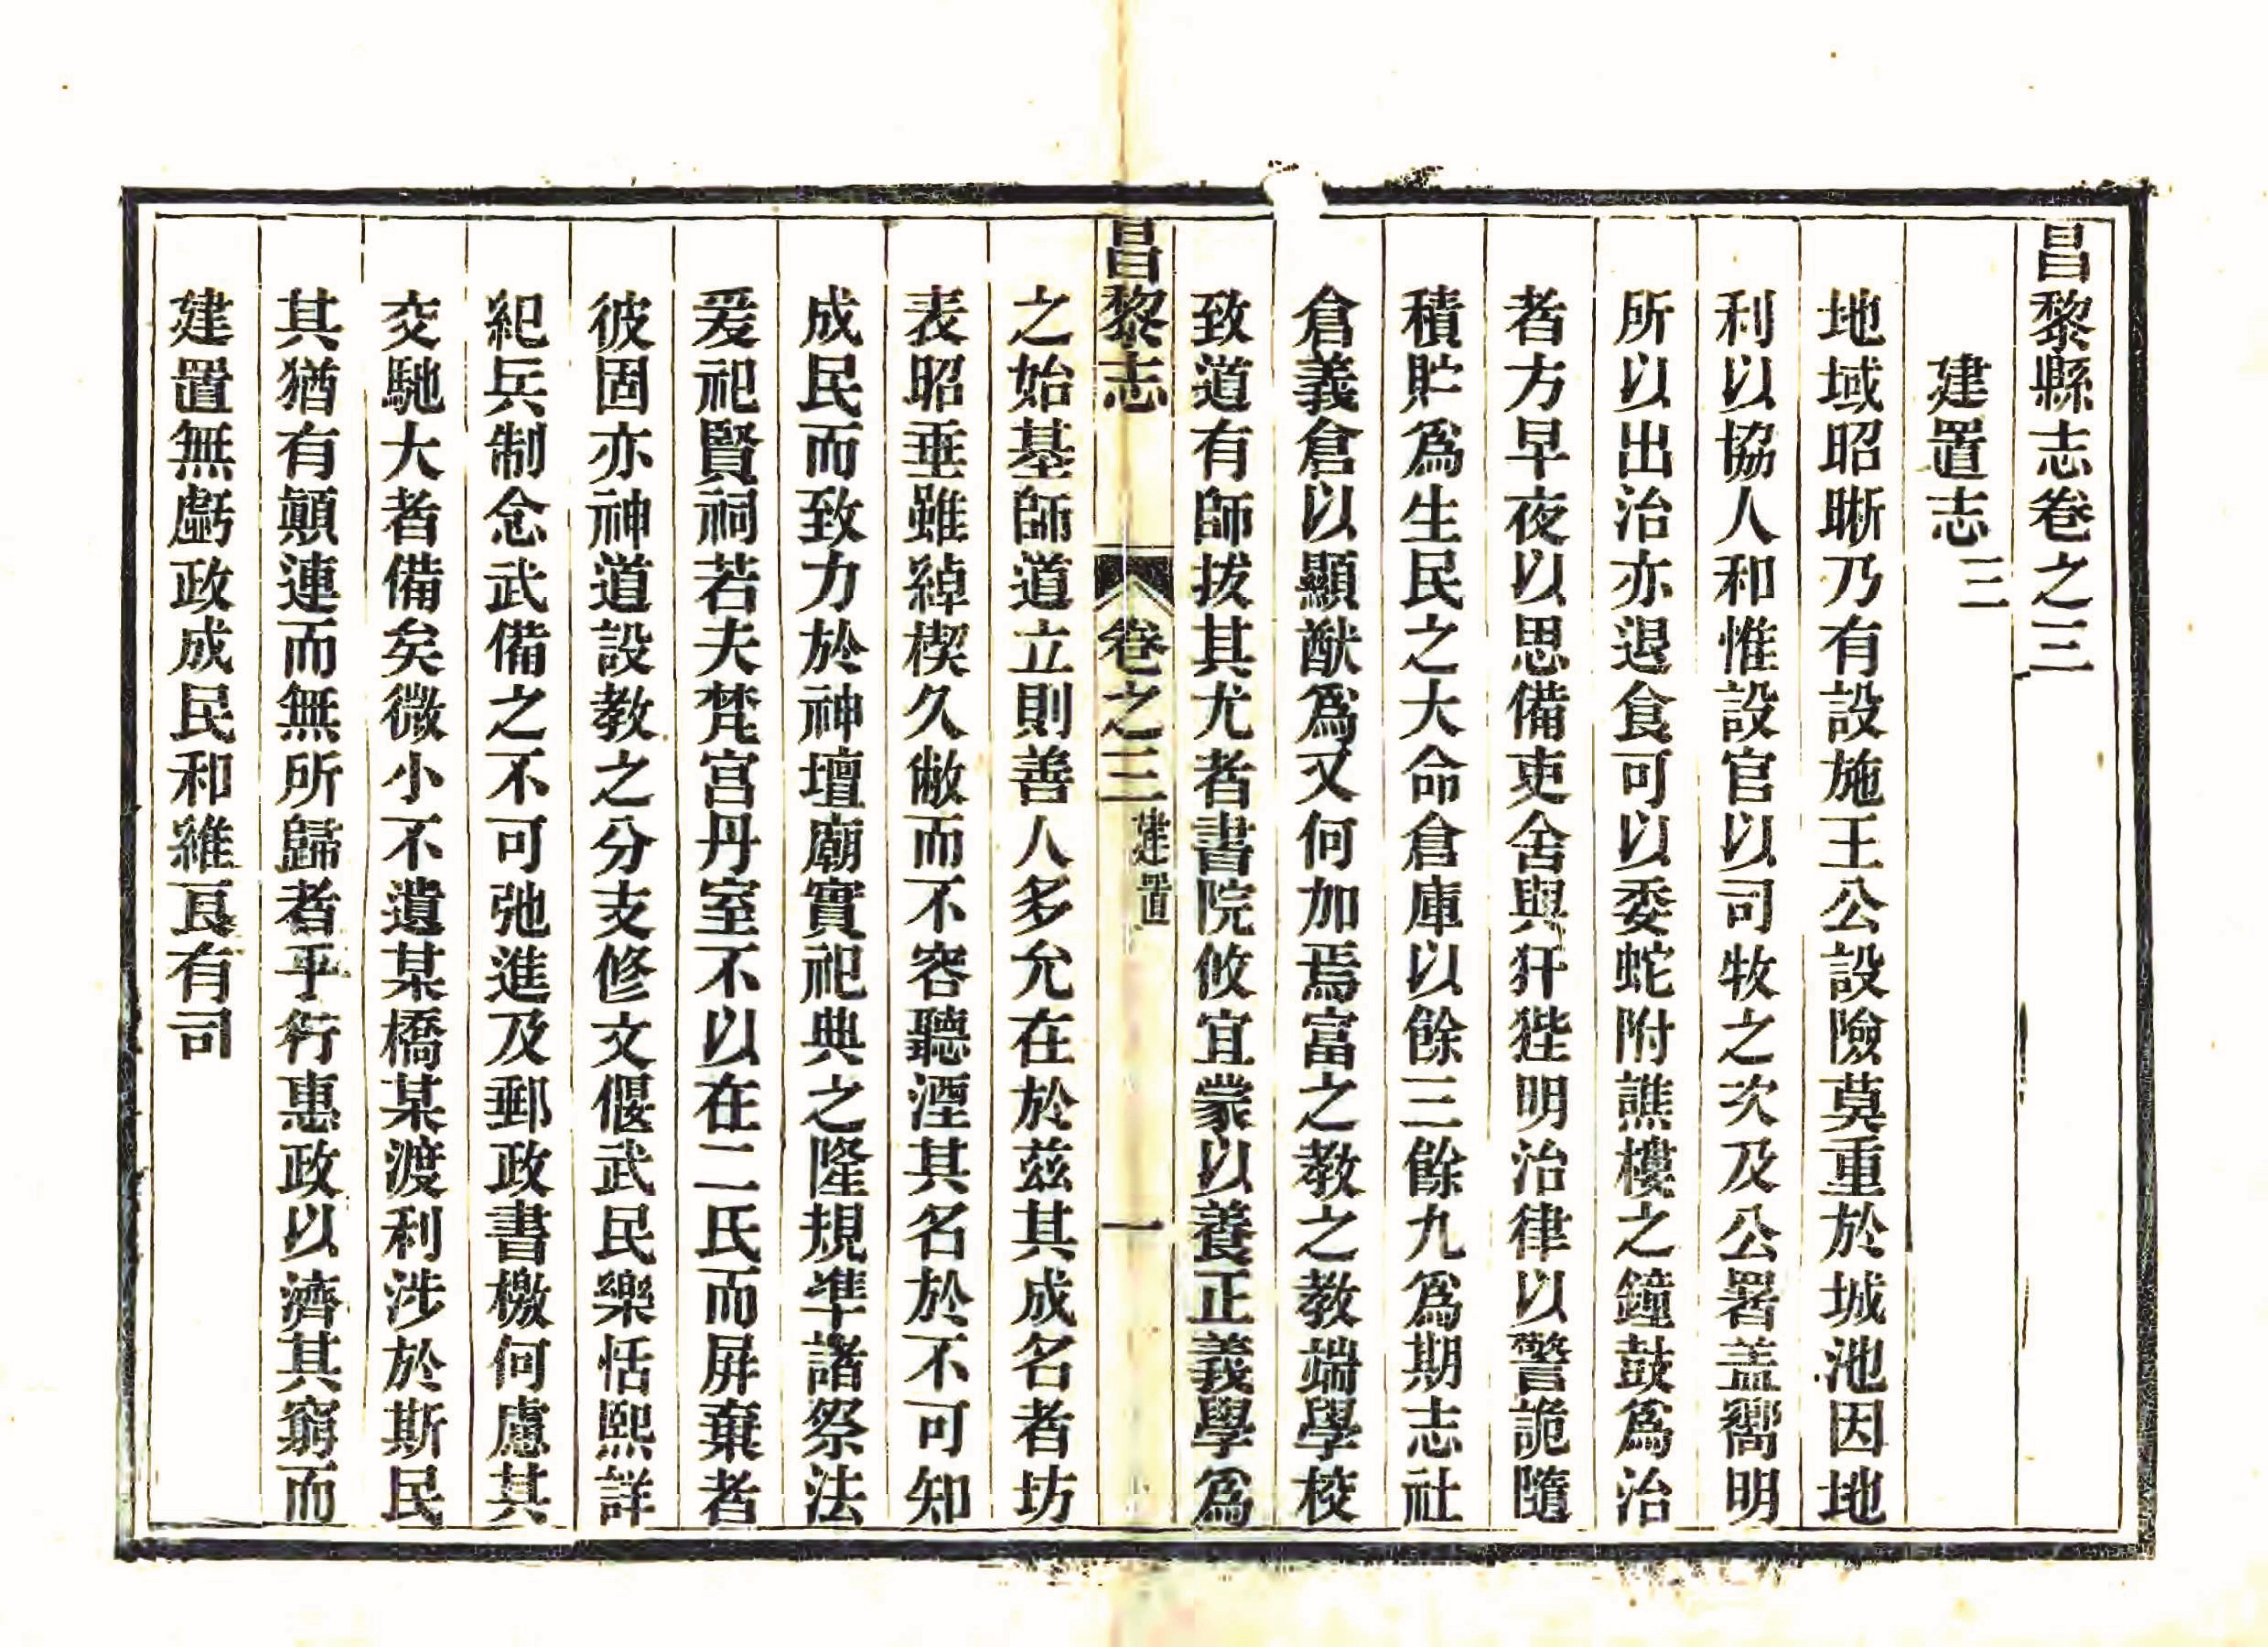 昌黎縣志卷之三
建置志三
地域昭晰乃有設施王公設險莫重於城池因地
利以協人和惟設官以司牧之次及公署盖嚮明
所以出治亦退食可以委蛇附譙樓之鐘鼓爲治
者方早夜以思備吏舍與犴狴明治律以警詭隨
積貯爲生民之大命倉庫以餘三餘九爲期志社
倉義倉以顯猷爲又何加焉富之教之教端學校
致道有師拔其尤者書院攸宜蒙以養正義學爲
昌黎志
卷之三
建置
一
之始基師道立則善人多允在於茲其成名者坊
表昭垂雖綽楔久敝而不容聽湮其名於不可知
成民而致力於神壇廟實祀典之隆規準諸祭法
爰祀賢祠若夫梵宫丹室不以在二氏而屏棄者
彼固亦神道設教之分支修文偃武民樂恬熙詳
紀兵制念武備之不可弛進及郵政書檄何慮其
交馳大者備矣微小不遺某橋某渡利涉於斯民
其猶有顛連而無所歸者乎行惠政以濟其窮而
建置無虧政成民和維良有司